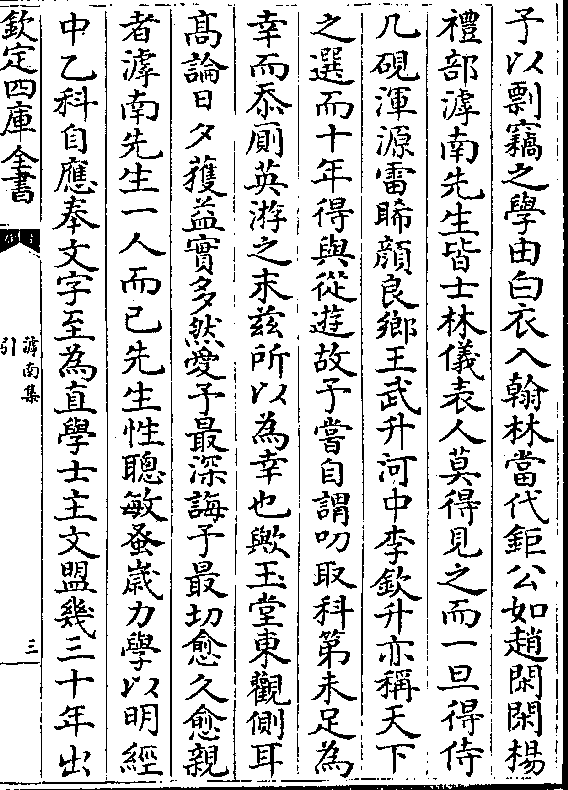 予以剽竊之學由白衣入翰林當代鉅公如趙閑閑楊
禮部滹南先生皆士林儀表人莫得見之而一旦得侍
几硯渾源雷晞顔良鄉王武升河中李欽升亦稱天下
之選而十年得與從遊故予嘗自謂叨取科第未足為
幸而忝厠英游之末兹所以為幸也歟玉堂東觀側耳
髙論日夕獲益實多然愛予最深誨予最切愈久愈親
者滹南先生一人而已先生性聰敏蚤歲力學以明經
中乙科自應奉文字至為直學士主文盟幾三十年出
欽定四庫全書
滹南集
引
三